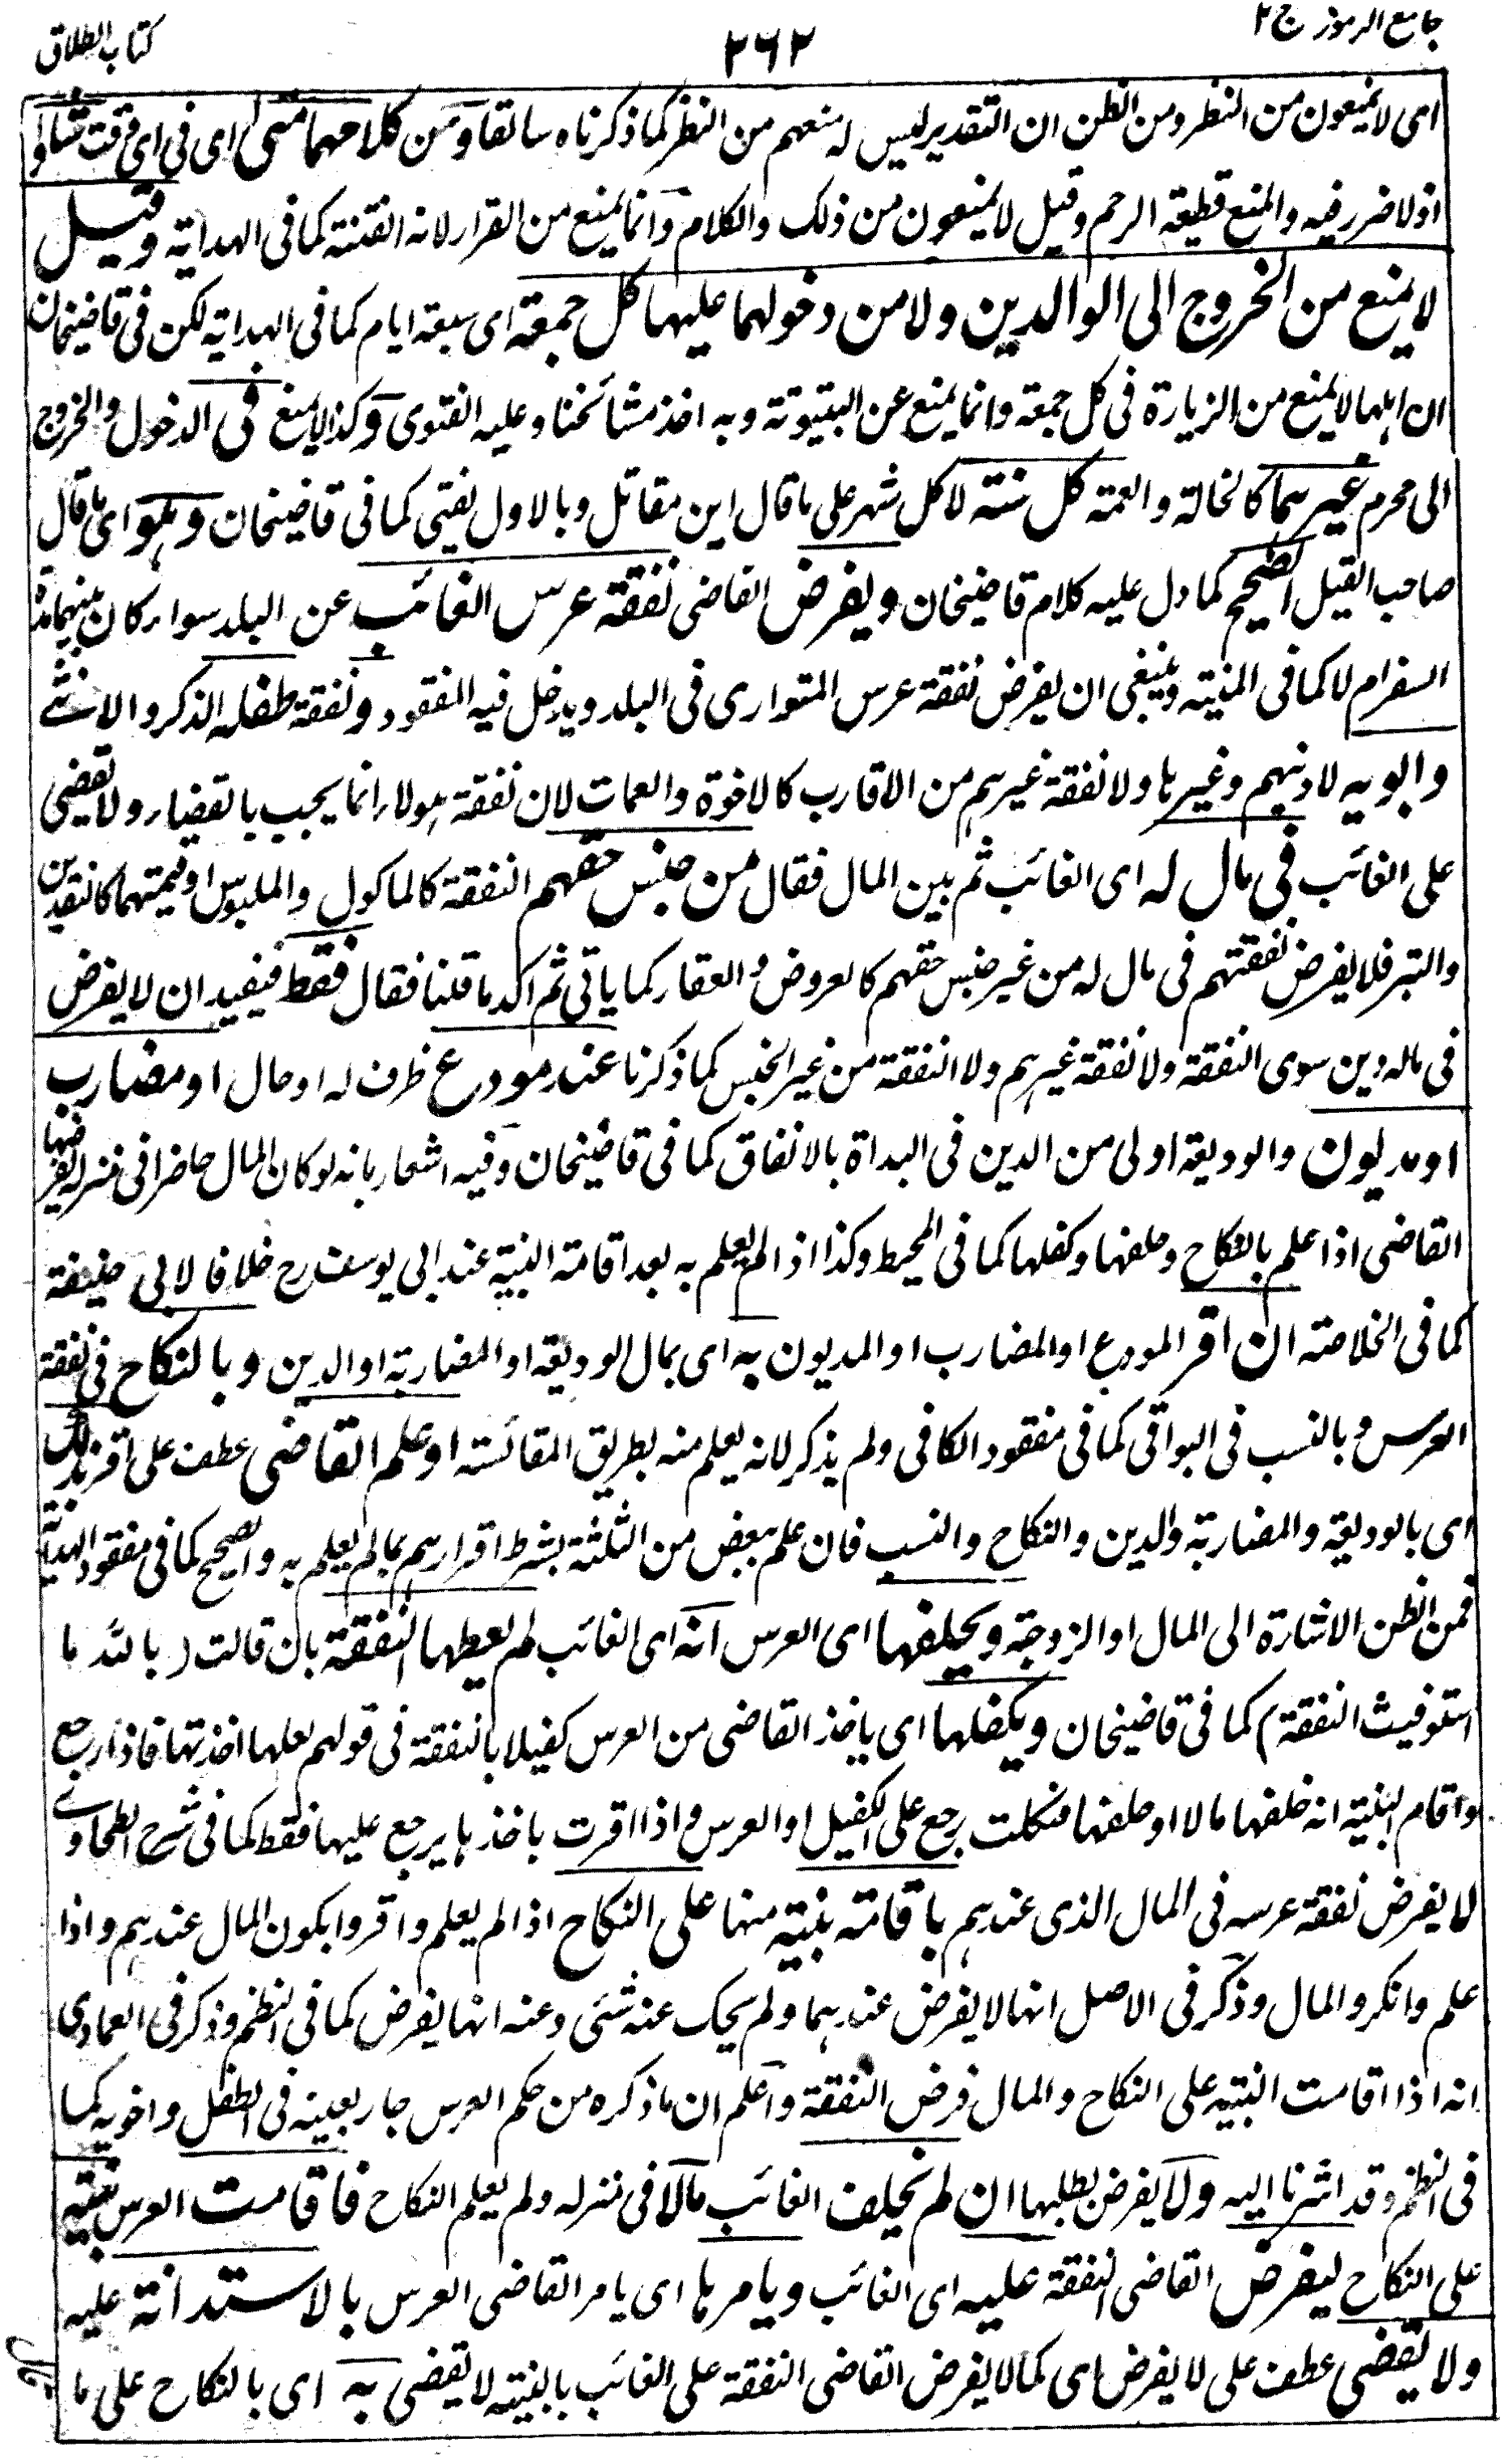 جامع الرموز ج ٢
٢٦٢
كتاب الطلاق
اى لا يمنعون من النظر ومن الظن ان التقدير ليس له منعهم من النظر كما ذكرناه سابقا ومن كلامهما متى اى فى اى وقت شاؤا
اذ لا ضرر فيه والمنع قطيعة الرحم وقيل لا يمنعون من ذلك والكلام وانما يمنع من القرار لانه الفتنة كما فى الهداية وقيل
لا يمنع من الخروج الى الوالدين ولا من دخولهما عليها كل جمعة اى سبعة ايام كما فى الهداية لكن فى قاضيخان
ان اهلها لا يمنع من الزيارة فى كل جمعة وانما يمنع عن البيتوتة وبه اخذ مشائخنا وعليه الفتوى وكذا لا يمنع فى الدخول والخروج
الى محرم غيرهما كالخالة والعمة كل سنة لا كل شهر على ما قال ابن مقاتل وبالاول يفتى كما فى قاضيخان وهو اى ما قال
صاحب القيل الصحيح كما دل عليه كلام قاضيخان ويفرض القاضى نفقة عرس الغائب عن البلد سواء كان بينهما مدة
السفر ام لا كما فى المنية وينبغى ان يفرض نفقة عرس المتوارى فى البلد ويدخل فيه المفقود ونفقة طفله الذكر والانثى
وابويه لا دينهم وغيرها ولا نفقة غيرهم من الاقارب كالاخوة والعمات لان نفقة هولاء انما يجب بالقضاء ولا يقضى
على الغائب فى مال له اى الغائب ثم بين المال فقال من جنس حقهم النفقة كالماكول والملبوس او قيمتهما كالنقدين
والتبر فلا يفرض نفقتهم فى مال له من غير جنس حقهم كالعروض والعقار كما ياتى ثم اكد ما قلنا فقال فقط فيفيد ان لا يفرض
فى ماله دين سوى النفقة ولا نفقة غيرهم ولا النفقة من غير الجنس كما ذكرنا عند مودع ظرف له او حال او مضارب
او مديون والوديعة اولى من الدين فى البداة بالانفاق كما فى قاضيخان وفيه اشعار بانه لو كان المال حاضرا فى منزله يفرضها
القاضى اذا علم بالنكاح وحلفها وكفلها كما فى المحيط وكذا اذا لم يعلم به بعد اقامة البينة عند ابى يوسف رح خلافا لابى حنيفة
كما فى الخلاصة ان اقر المودع او المضارب او المديون به اى بمال الوديعة او المضاربة او الدين وبالنكاح فى نفقة
العرس وبالنسب فى البواقى كما فى مفقود الكافى ولم يذكر لانه يعلم منه بطريق المقائسة او علم القاضى عطف على اقر بذلك
اى بالوديعة والمضاربة والدين والنكاح والنسب فان علم ببعض من الثلثة بشرط اقرارهم بما لم يعلم به والصحيح كما فى مفقود الهداية
فمن الظن الاشارة الى المال او الزوجة ويحلفها اى العرس انه اى الغائب لم يعطها النفقة بان قالت ( بالله ما
استوفيت النفقة ) كما فى قاضيخان ويكفلها اى ياخذ القاضى من العرس كفيلا بالنفقة فى قولهم لعلها اخذتها فاذا رجع
واقام البينة انه خلفها مالا او حلفها فنكلت رجع على الكفيل او العرس واذا اقرت باخذها يرجع عليها فقط كما فى شرح الطحاوى
لا يفرض نفقة عرسه فى المال الذى عندهم باقامة بينة منها على النكاح اذا لم يعلم واقروا بكون المال عندهم واذا
علم وانكروا المال وذكر فى الاصل انها لا يفرض عندهما ولم يحك عنه شئى وعنه انها يفرض كما فى النظم وذكر فى العمادى
انه اذا اقامت البينة على النكاح والمال فرض النفقة واعلم ان ما ذكره من حكم العرس جار بعينه فى الطفل واخويه كما
فى النظم وقد اشرنا اليه ولا يفرض بطلبها ان لم يخلف الغائب مالا فى منزله ولم يعلم النكاح فاقامت العرس بينة
على النكاح ليفرض القاضى النفقة عليه اى الغائب ويامرها اى يامر القاضى العرس بالاستدانة عليه
ولا يقضى عطف على لا يفرض اى كما لا يفرض القاضى النفقة على الغائب بالبينة لا يقضى به اى بالنكاح على ما